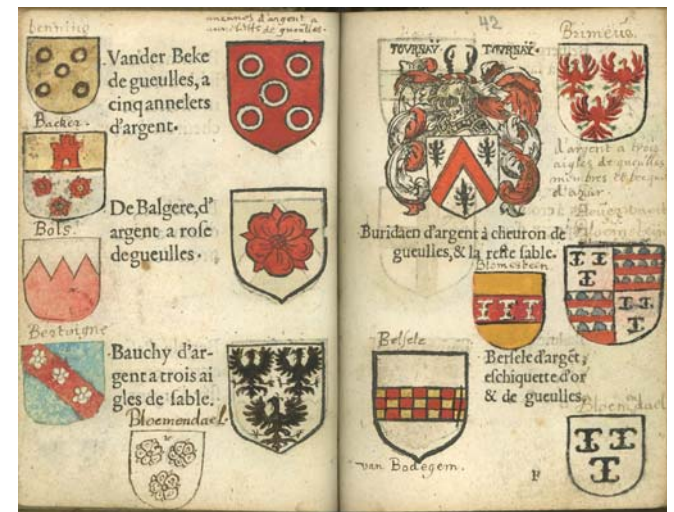 annelets d'argent a
Vander Beke
de gueulles, a
cinq annelets
d'argent.
Backer.
Bols.
De Balgere, d'
argent a rose
de gueulles.
Bauchy d'ar-
gent a trois ai
gles de sable.
Bloemendael.
42
TOVRNAŸ TOVRNAŸ.
Brimeüs.
d'argent a trois
aigles de gueulles
membres et
d'azur.
Buridaen d'argent à cheuron de
gueulles, & la reste sable.
Blomestein
Bersele
Bersele d'argẽt,
eschiquette d'or
& de gueulles.
Bloemdael
van Bodegem.
F